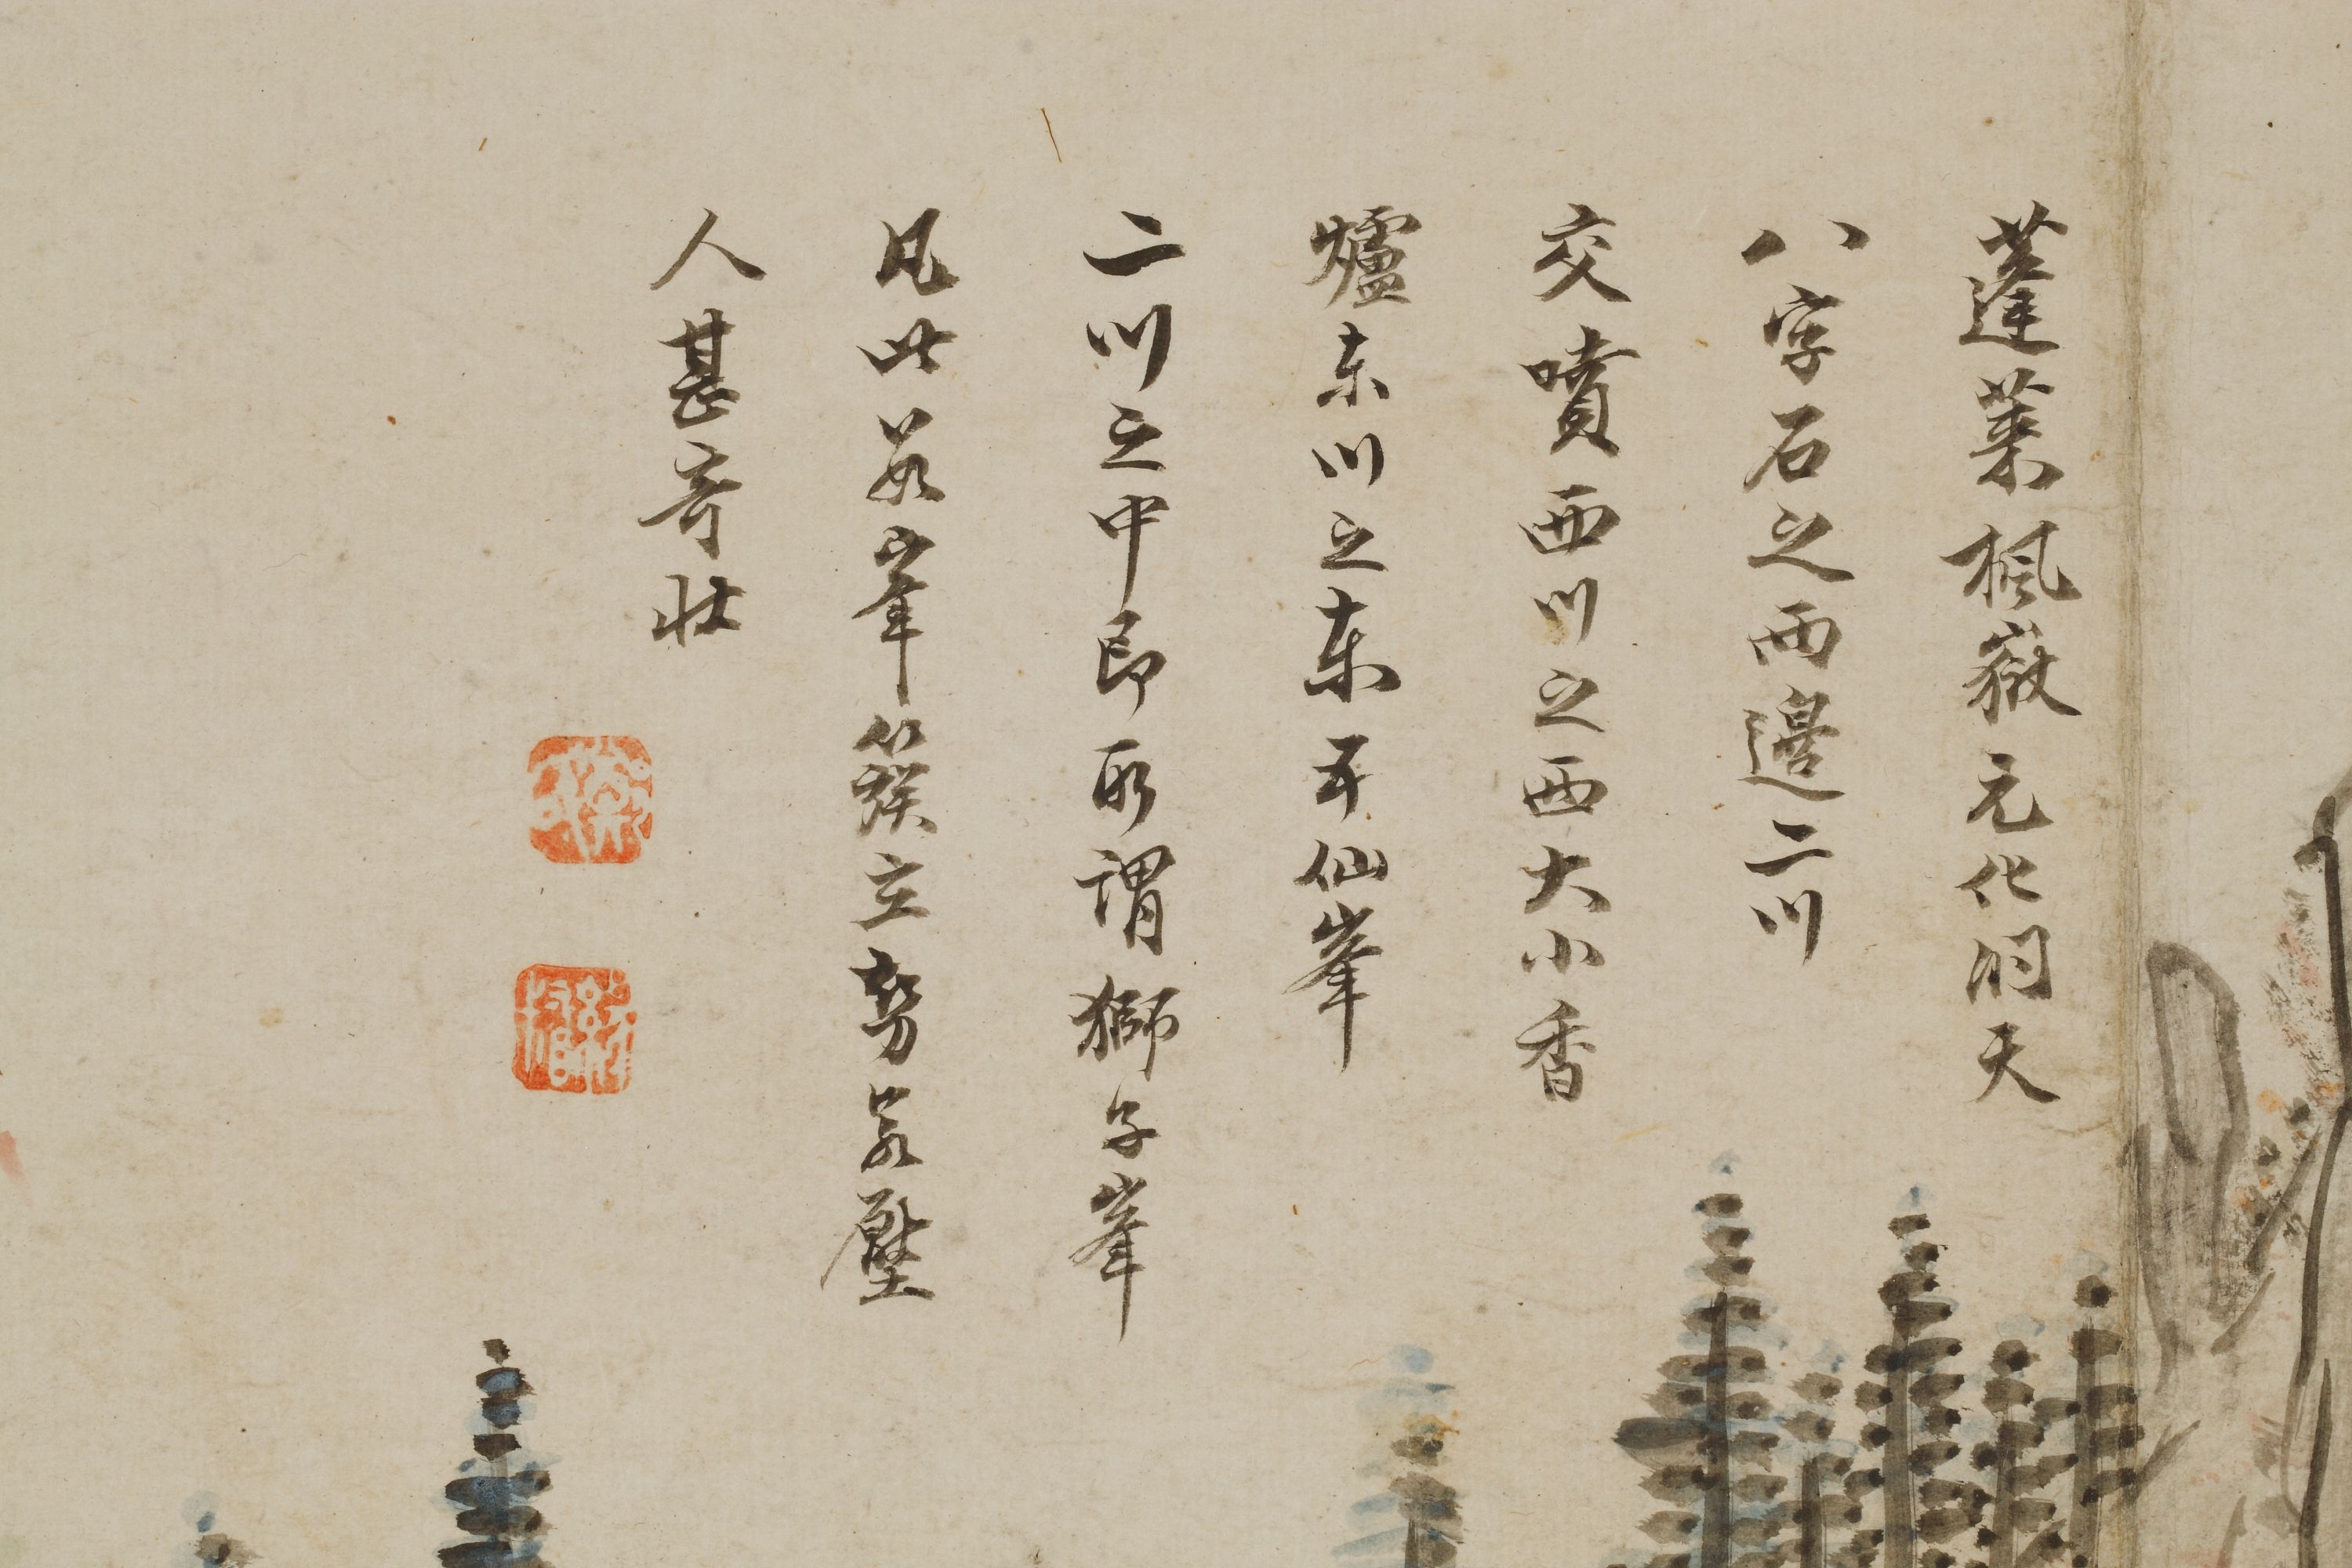 蓬萊楓嶽元化洞天
八字石之兩邊二川
交噴西川之西大小香
爐東川之東五仙峯
二川之中即所謂獅子峯
凡此若峯簇立勢若壓
人甚奇壯